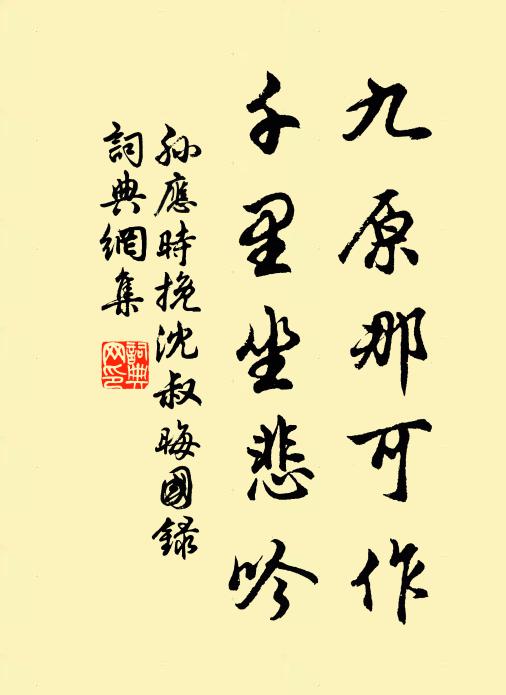 九原那可作
千里坐悲吟
孙應時挽沈叔晦國録
詞典網集
詞典網印